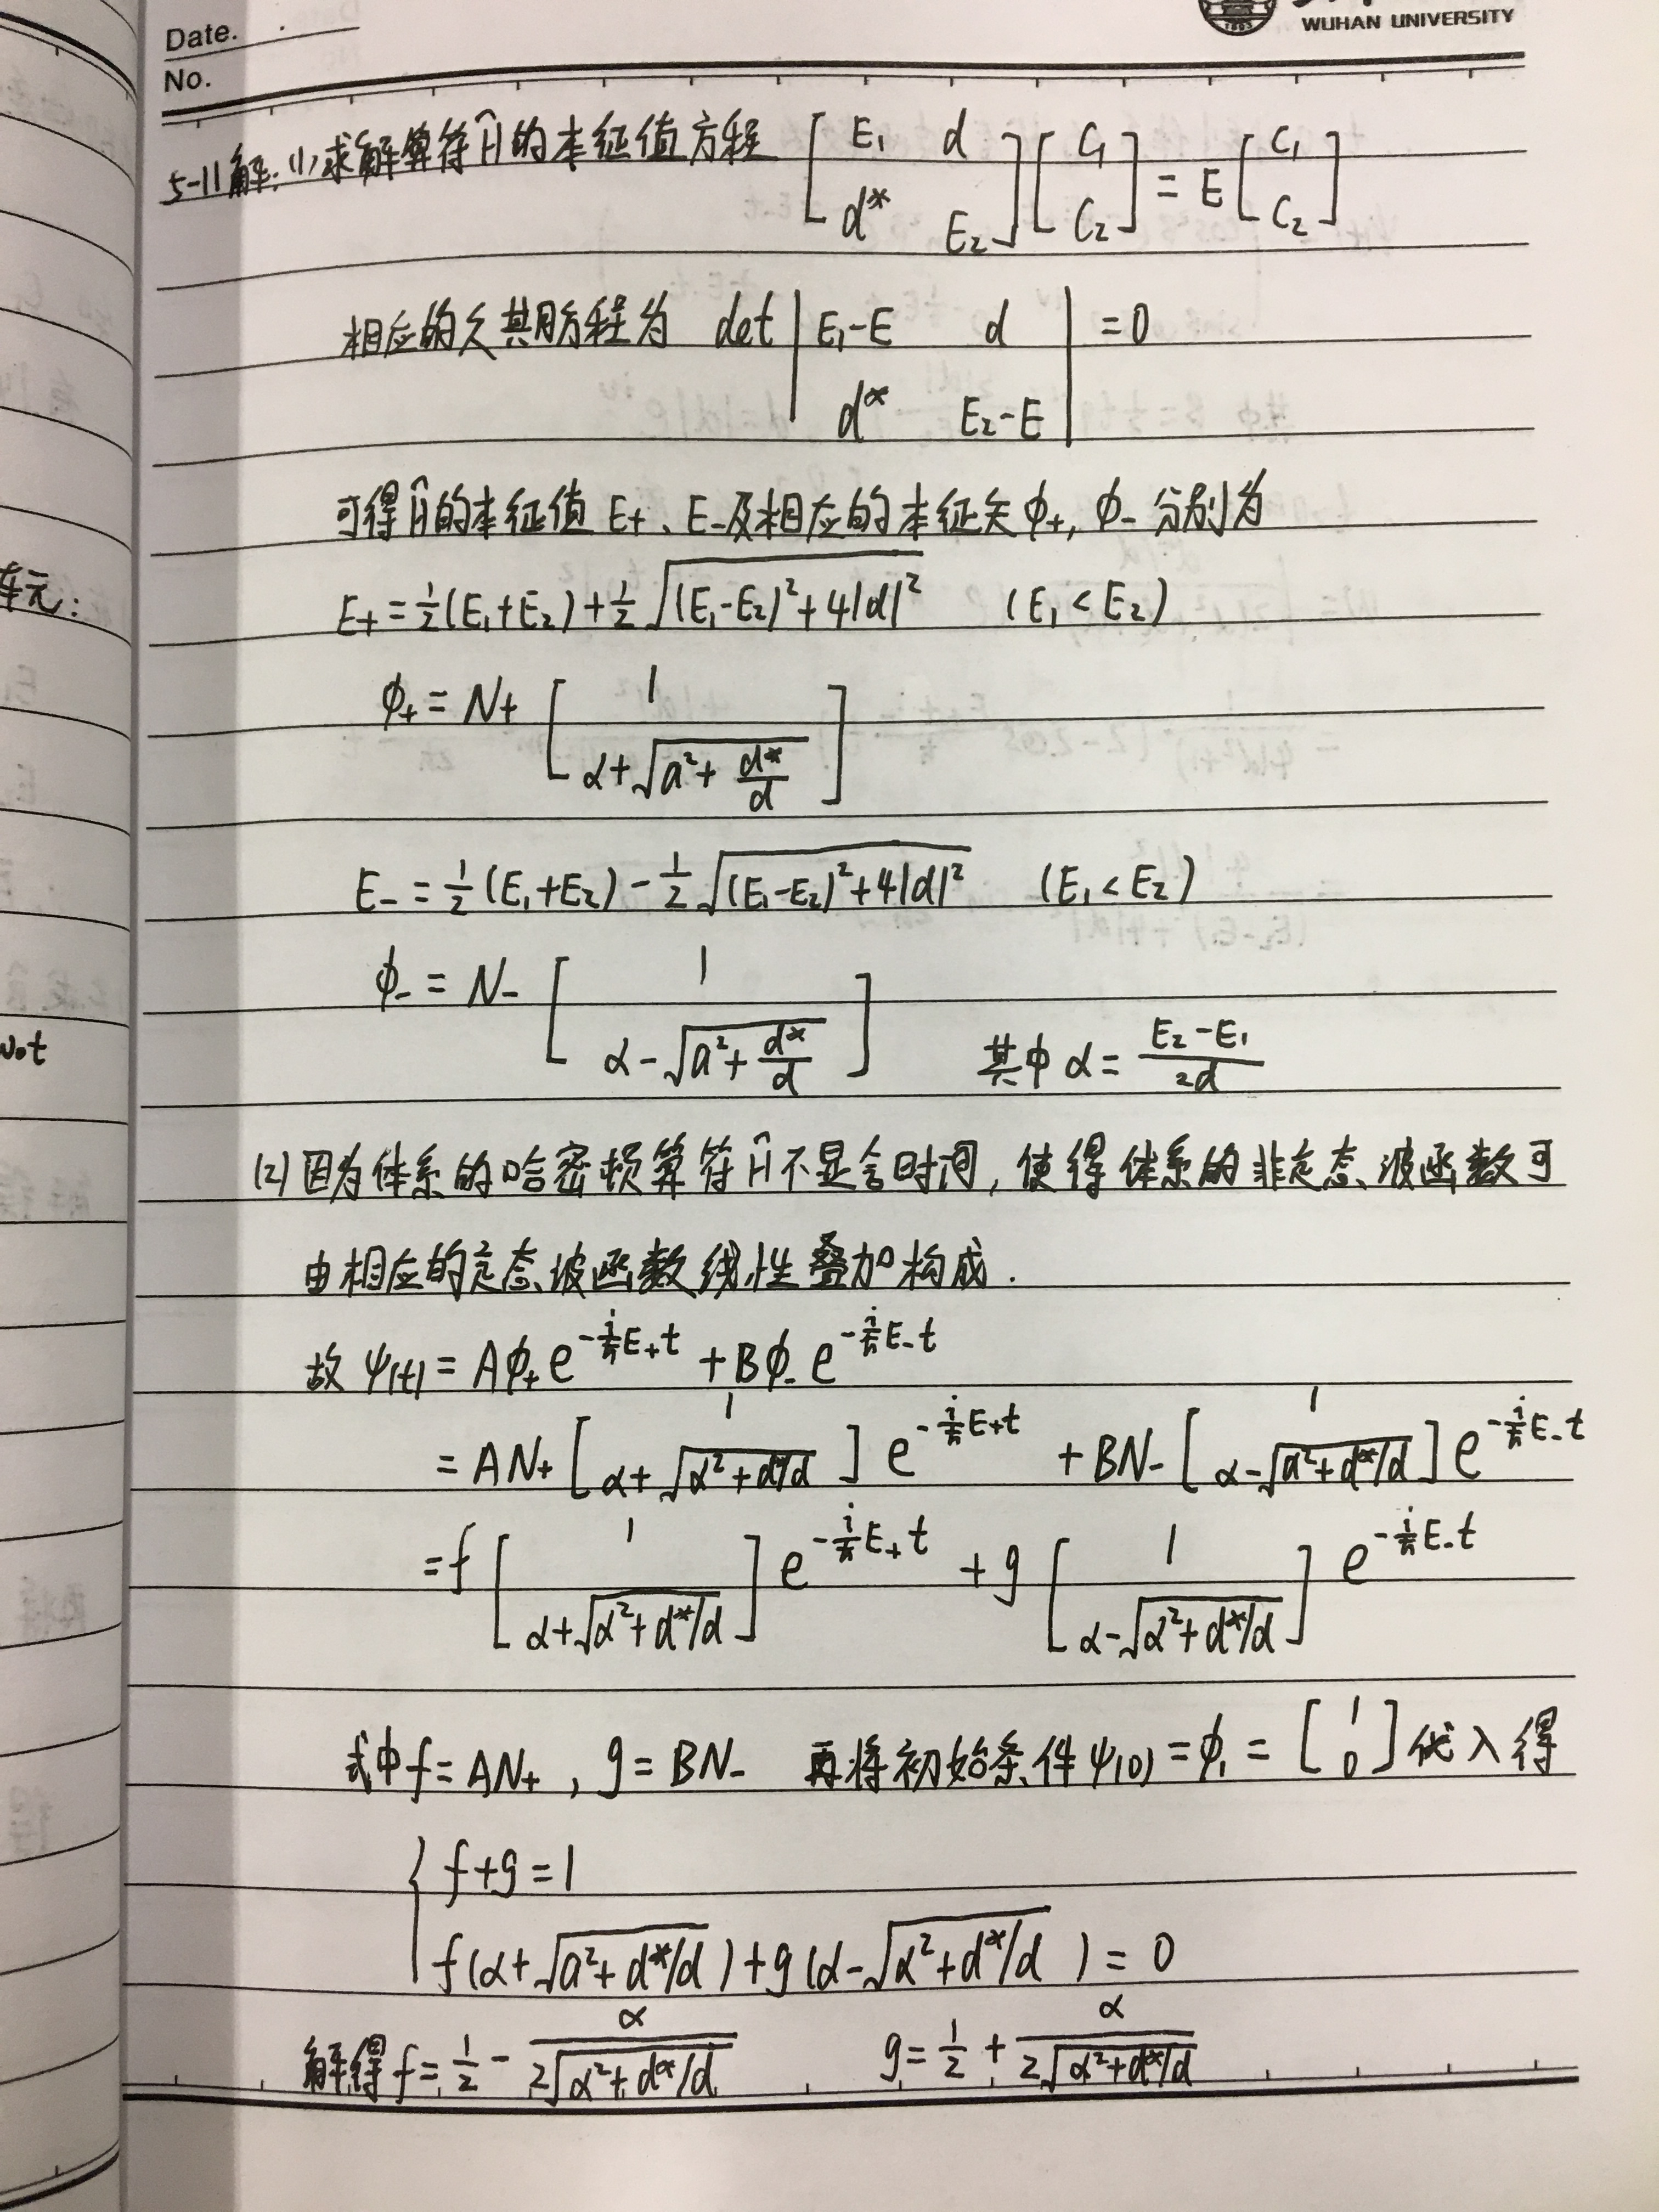 Date.
No.
WUHAN UNIVERSITY
5-11解:(1)求解算符Ĥ的本征值方程 [E₁ d; d* E₂][C₁; C₂] = E[C₁; C₂]
相应的久其月方程为 det|E₁-E d; d* E₂-E| = 0
可得Ĥ的本征值 E+、E-及相应的本征矢 ϕ+, ϕ- 分别为
E+ = ½(E₁+E₂) + ½√((E₁-E₂)²+4|d|²) (E₁<E₂)
ϕ+ = N+ [1; α+√(a²+d*/d)]
E- = ½(E₁+E₂) - ½√((E₁-E₂)²+4|d|²) (E₁<E₂)
ϕ- = N- [1; α-√(a²+d*/d)] 其中 α = (E₂-E₁)/2d
(2)因为体系的哈密顿算符Ĥ不显含时间, 使得体系的非定态波函数可
由相应的定态波函数线性叠加构成.
故 ψ(t) = Aϕ+ e^(-i/ħ E+t) + Bϕ- e^(-i/ħ E-t)
= AN+ [1; α+√(α²+d*/d)] e^(-i/ħ E+t) + BN- [1; α-√(a²+d*/d)] e^(-i/ħ E-t)
= f [1; α+√(α²+d*/d)] e^(-i/ħ E+t) + g [1; α-√(α²+d*/d)] e^(-i/ħ E-t)
式中 f = AN+ , g = BN- 再将初始条件 ψ(0) = ϕ₁ = [1; 0] 代入得
{ f+g = 1
f(α+√(a²+d*/d)) + g(α-√(α²+d*/d)) = 0
解得 f = ½ - α/(2√(α²+d*/d)) g = ½ + α/(2√(α²+d*/d))